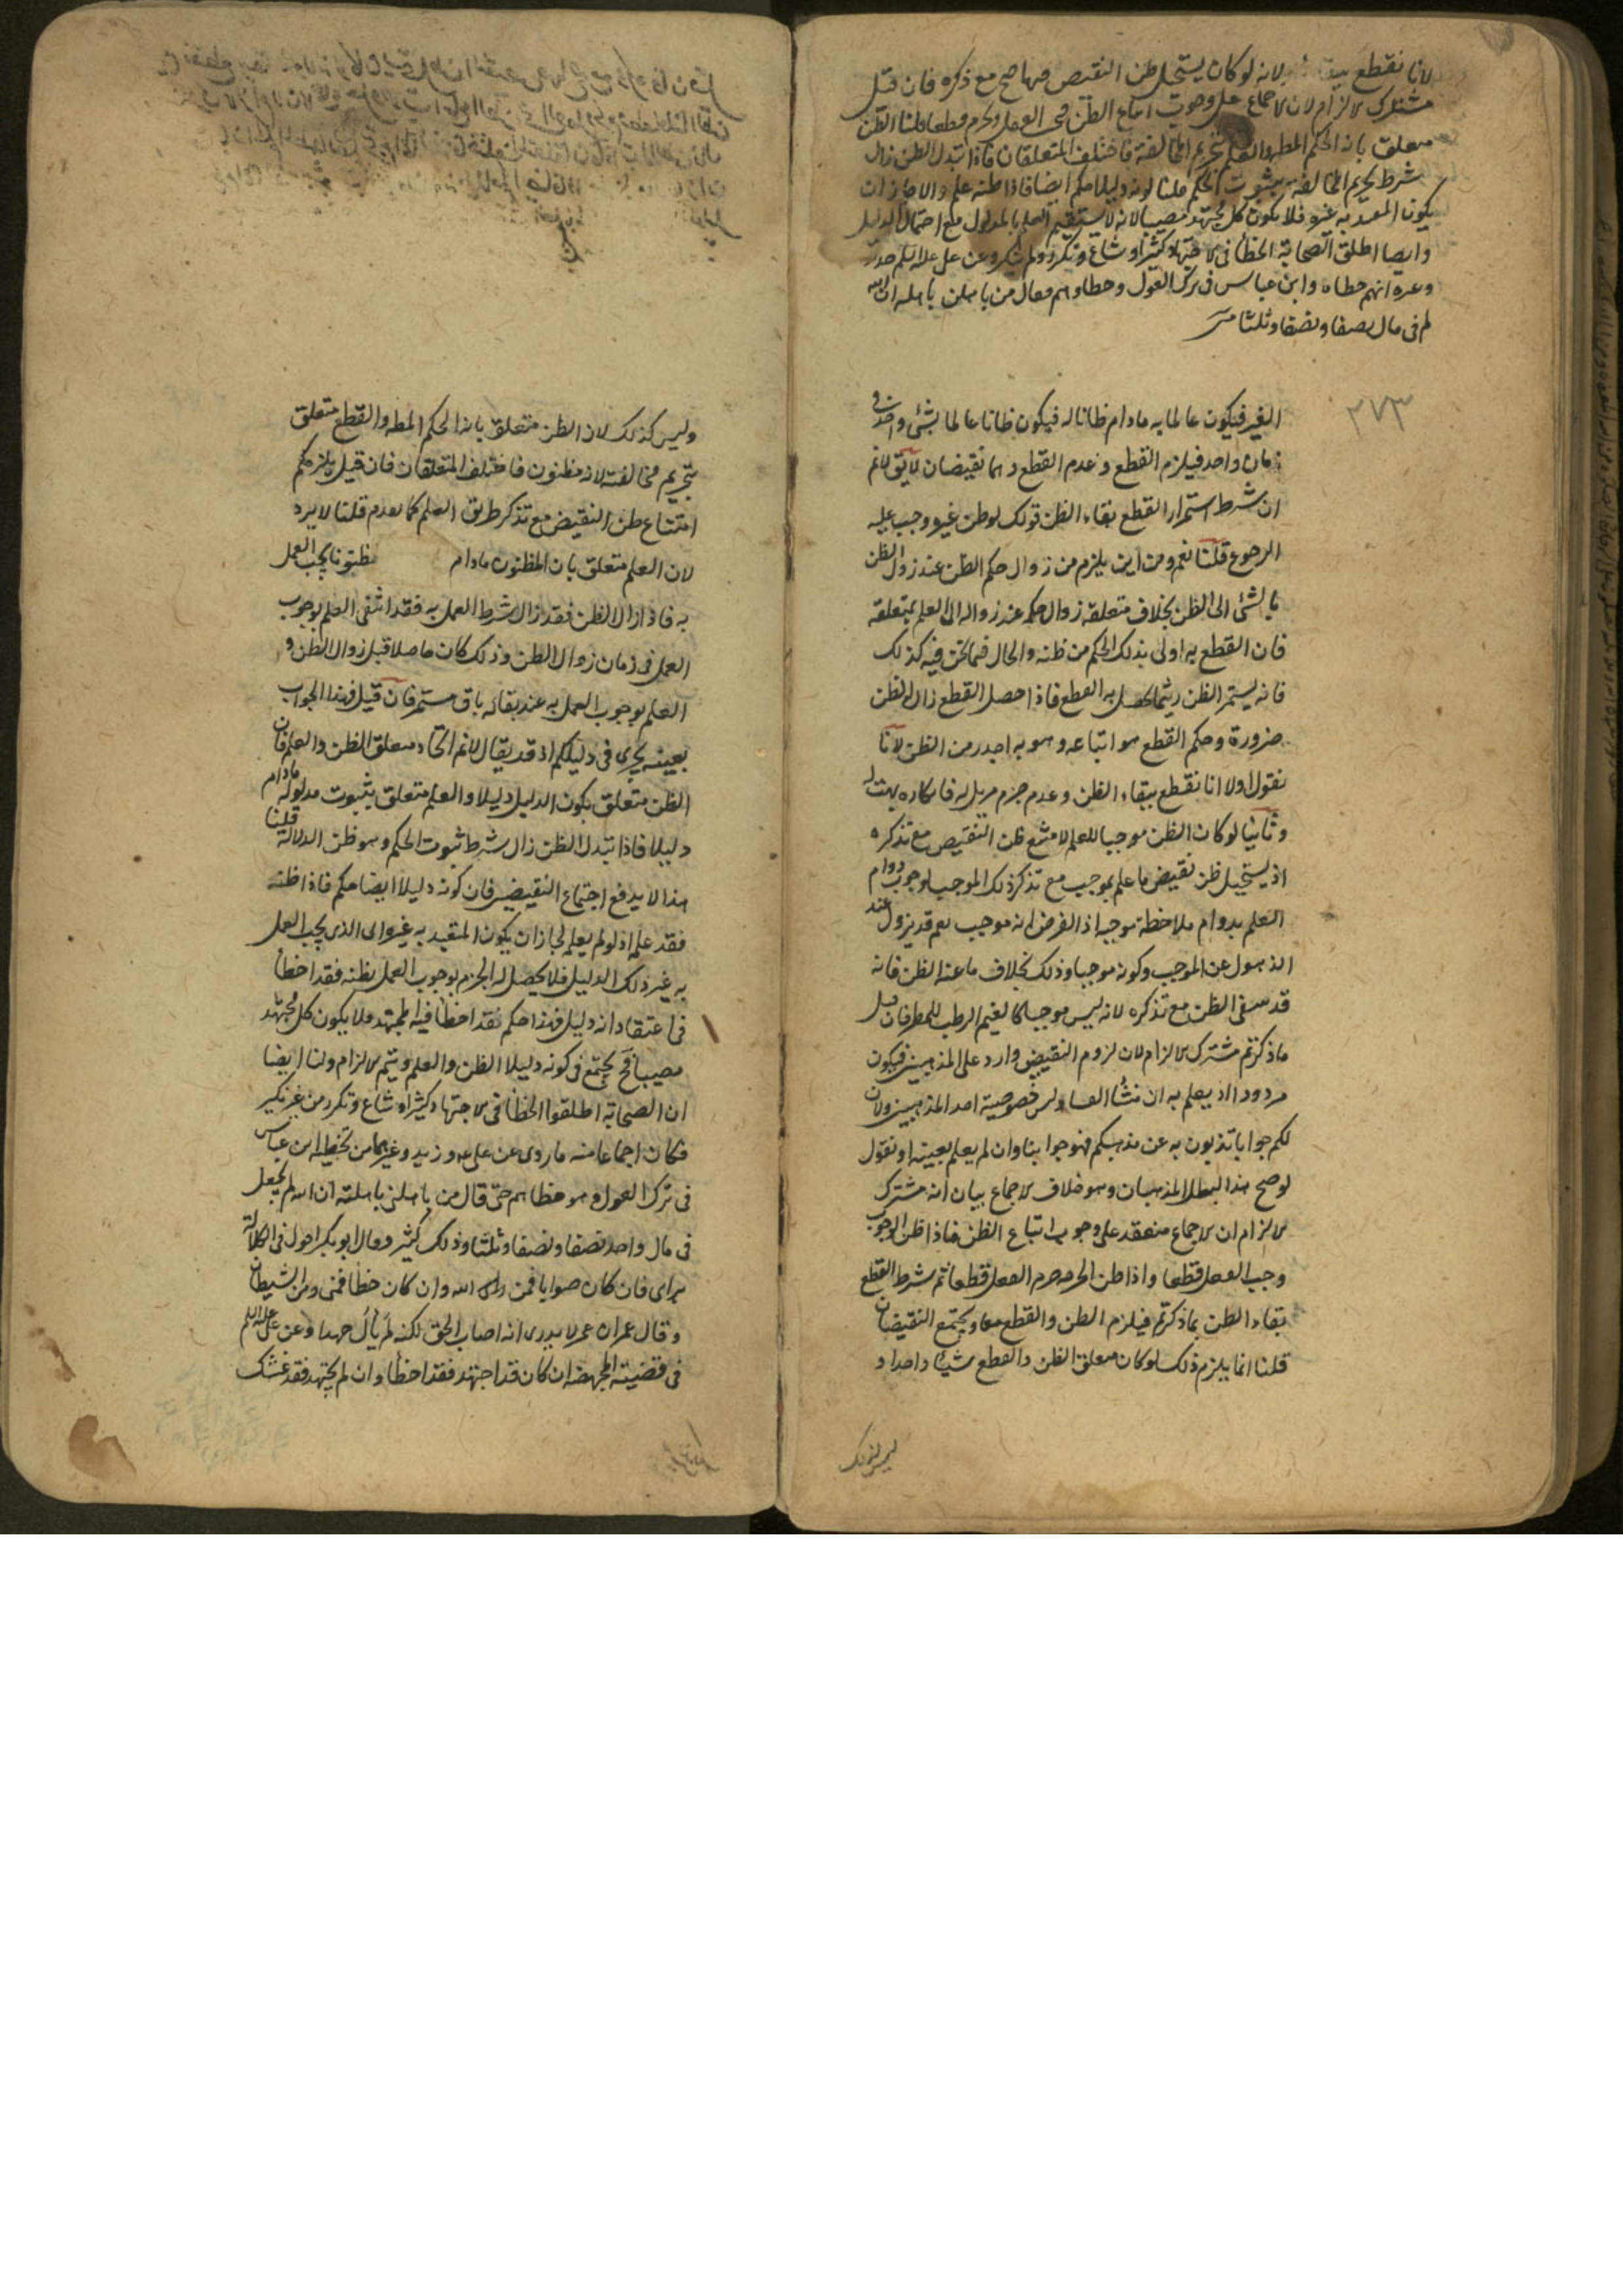 لانا نقطع ببقا لانه لو كان يستحيل ظن النقيض مهما صح مع ذكره فان قيل
مشترك الالزام لان الاجماع على وجوب اتباع الظن فيجب الفعل ويحرم قطعا قلنا الظن
متعلق بانه الحكم المط والعلم بتحريم المخالفة فاختلف المتعلقان فاذا تبدل الظن زال
شرط تحريم المخالفة بثبوت الحكم قلنا كونه دليلا حكم ايضا فاذا ظنه علم والا جاز ان
يكون المتعبد به غيره فلا يكون كل مجتهد مصيبا لانه لا يستقيم العلم بالمدلول مع احتمال الدليل
وايضا اطلق الصحابة الخطأ في الاجتهاد كثيرا وشاع وتكرر ولم ينكر وعن على عليه السلم وزيد
وغيره انهم خطاه وابن عباس في ترك العول وخطاوهم وقال من باهلنى باهلته ان الله
لم في مال نصفا ونصفا وثلثا
٣٧٣
الغير فيكون عالما به ما دام ظانا له فيكون ظانا عالما بشئ واحد في
زمان واحد فيلزم القطع وعدم القطع وهما نقيضان لا يق لانم
ان شرط استمرار القطع بقاء الظن قولك لو ظن غيره وجب عليه
الرجوع قلنا نعم ومن اين يلزم من زوال حكم الظن عند زوال الظن
بالشئ الى الظن بخلاف متعلقه زوال حكمه عند زواله الى العلم بمتعلقه
فان القطع به اولى بذلك الحكم من ظنه والحال فيما نحن فيه كذلك
فانه يستمر الظن ريثما يحصل به القطع فاذا حصل القطع زال الظن
ضرورة وحكم القطع هو اتباعه وهو به اجدر من الظن لانا
نقول اولا انا نقطع ببقاء الظن وعدم جزم مزيل له فانكاره بهت
وثانيا لو كان الظن موجبا للعلم لامتنع ظن النقيض مع تذكره
اذ يستحيل ظن نقيض ما علم بموجب مع تذكر ذلك الموجب لوجوب دوام
العلم بدوام ملاحظة موجبه اذ الفرض انه موجب نعم قد يزول عند
الذهول عن الموجب وكونه موجبا وذلك بخلاف ما عنه الظن فانه
قد ينتفى الظن مع تذكره لانه ليس موجبا كالغيم الرطب للمطر فان قيل
ما ذكرتم مشترك الالزام لان لزوم النقيضين وارد على المذهبين فيكون
مردودا اذ يعلم به ان منشأ الفساد ليس خصوصية احد المذهبين ولان
لكم جوابا تذبون به عن مذهبكم فهو جوابنا وان لم يعلم بعينه او نقول
لو صح هذا لبطل المذهبان وهو خلاف الاجماع بيان انه مشترك
الالزام ان الاجماع منعقد على وجوب اتباع الظن فاذا ظن الوجوب
وجب الفعل قطعا واذا ظن الحرمة حرم الفعل قطعا ثم شرط القطع
بقاء الظن بما ذكرتم فيلزم الظن والقطع معا ويجتمع النقيضان
قلنا انما يلزم ذلك لو كان متعلق الظن والقطع شيئا واحدا و
ليس كذلك
وليس كذلك لان الظن متعلق بانه الحكم المط والقطع متعلق
بتحريم مخالفته لانه مظنون فاختلف المتعلقان فان قيل يلزمكم
امتناع ظن النقيض مع تذكر طريق العلم كما تقدم قلنا لا يرد
لان العلم متعلق بان المظنون ما دام مظنونا يجب العمل
به فاذا زال الظن فقد زال شرط العمل به فقد انتفى العلم بوجوب
العمل في زمان زوال الظن وذلك كان حاصلا قبل زوال الظن و
العلم بوجوب العمل به عند بقائه باق مستمر فان قيل فهذا الجواب
بعينه يجرى في دليلكم اذ قد يقال لانم اتحاد متعلق الظن والعلم فان
الظن متعلق بكون الدليل دليلا والعلم متعلق بثبوت مدلوله ما دام
دليلا فاذا تبدل الظن زال شرط ثبوت الحكم وهو ظن الدلالة قلنا
هذا لا يدفع اجتماع النقيضين فان كونه دليلا ايضا حكم فاذا ظنه
فقد علمه اذ لو لم يعلم لجاز ان يكون المتعبد به غيره اى الذى يجب العمل
به غير ذلك الدليل فلا يحصل له الجزم بوجوب العمل بظنه فقد اخطأ
في اعتقاد انه دليل فهذا حكم فقد اخطأ فيه المجتهد فلا يكون كل مجتهد
مصيبا فح يجتمع في كونه دليلا الظن والعلم ويتم الالزام ولنا ايضا
ان الصحابة اطلقوا الخطأ في الاجتهاد كثيرا وشاع وتكرر من غير نكير
فكان اجماعا منه ما روى عن على ع وزيد وغيرهما من تخطئة ابن عباس
في ترك العول وهو خطاهم حتى قال من باهلنى باهلته ان الله لم يجعل
في مال واحد نصفا ونصفا وثلثا وذلك كثير وقال ابو بكر اقول في الكلالة
برأى فان كان صوابا فمن الله وان كان خطأ فمنى ومن الشيطان
وقال عمر ان عمر لا يدرى انه اصاب الحق لكنه لم يأل جهدا وعن على عليه السلم
في قضية المجهضة ان كان قد اجتهد فقد اخطأ وان لم يجتهد فقد غشك